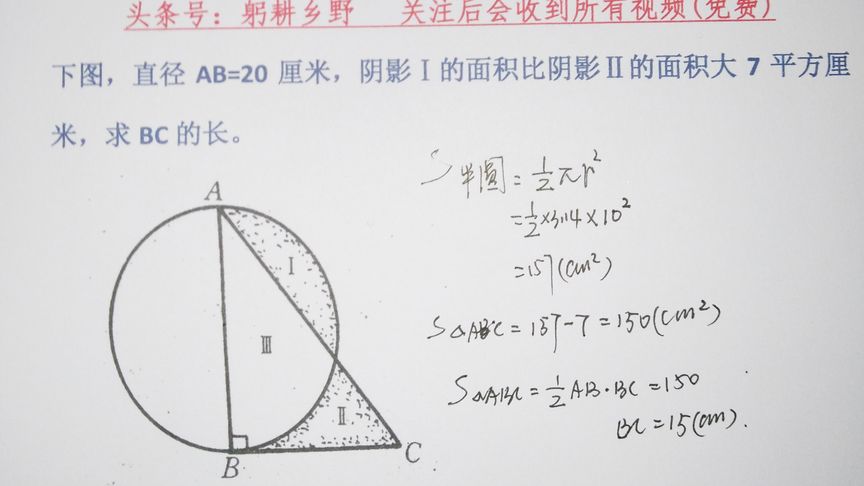 头条号：躬耕乡野 关注后会收到所有视频(免费)
下图，直径 AB=20 厘米，阴影Ⅰ的面积比阴影Ⅱ的面积大 7 平方厘
米，求 BC 的长。
A
Ⅰ
Ⅲ
Ⅱ
B
C
S半圆=½πr²
=½×3.14×10²
=157(cm²)
S△ABC=157-7=150(cm²)
S△ABC=½AB·BC=150
BC=15(cm).